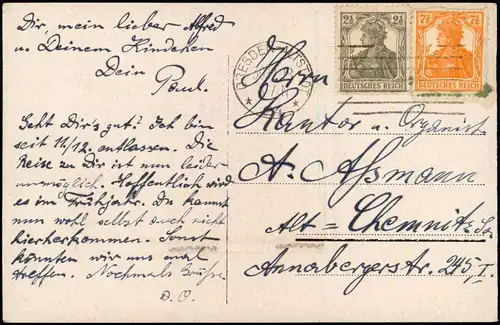 Dir, mein lieber Alfred
u. Deinem Kindchen
Dein
Paul.
Geht Dir's gut? Ich bin
seit 11/12. entlassen. Die
Reise zu Dir ist nun leider
unmöglich. Hoffentlich wird
es im Frühjahr. Du kannst
nun wohl selbst auch nicht
hierherkommen. Sonst
könnten wir uns mal
treffen. Nochmals Grüße
D. O.
DRESDEN-ALTSTADT
2½ 2½
DEUTSCHES REICH
7½ 7½
DEUTSCHES REICH
Herrn
Kantor u. Organist
A. Aßmann
Alt = Chemnitz Sa.
Annabergerstr. 245, I.